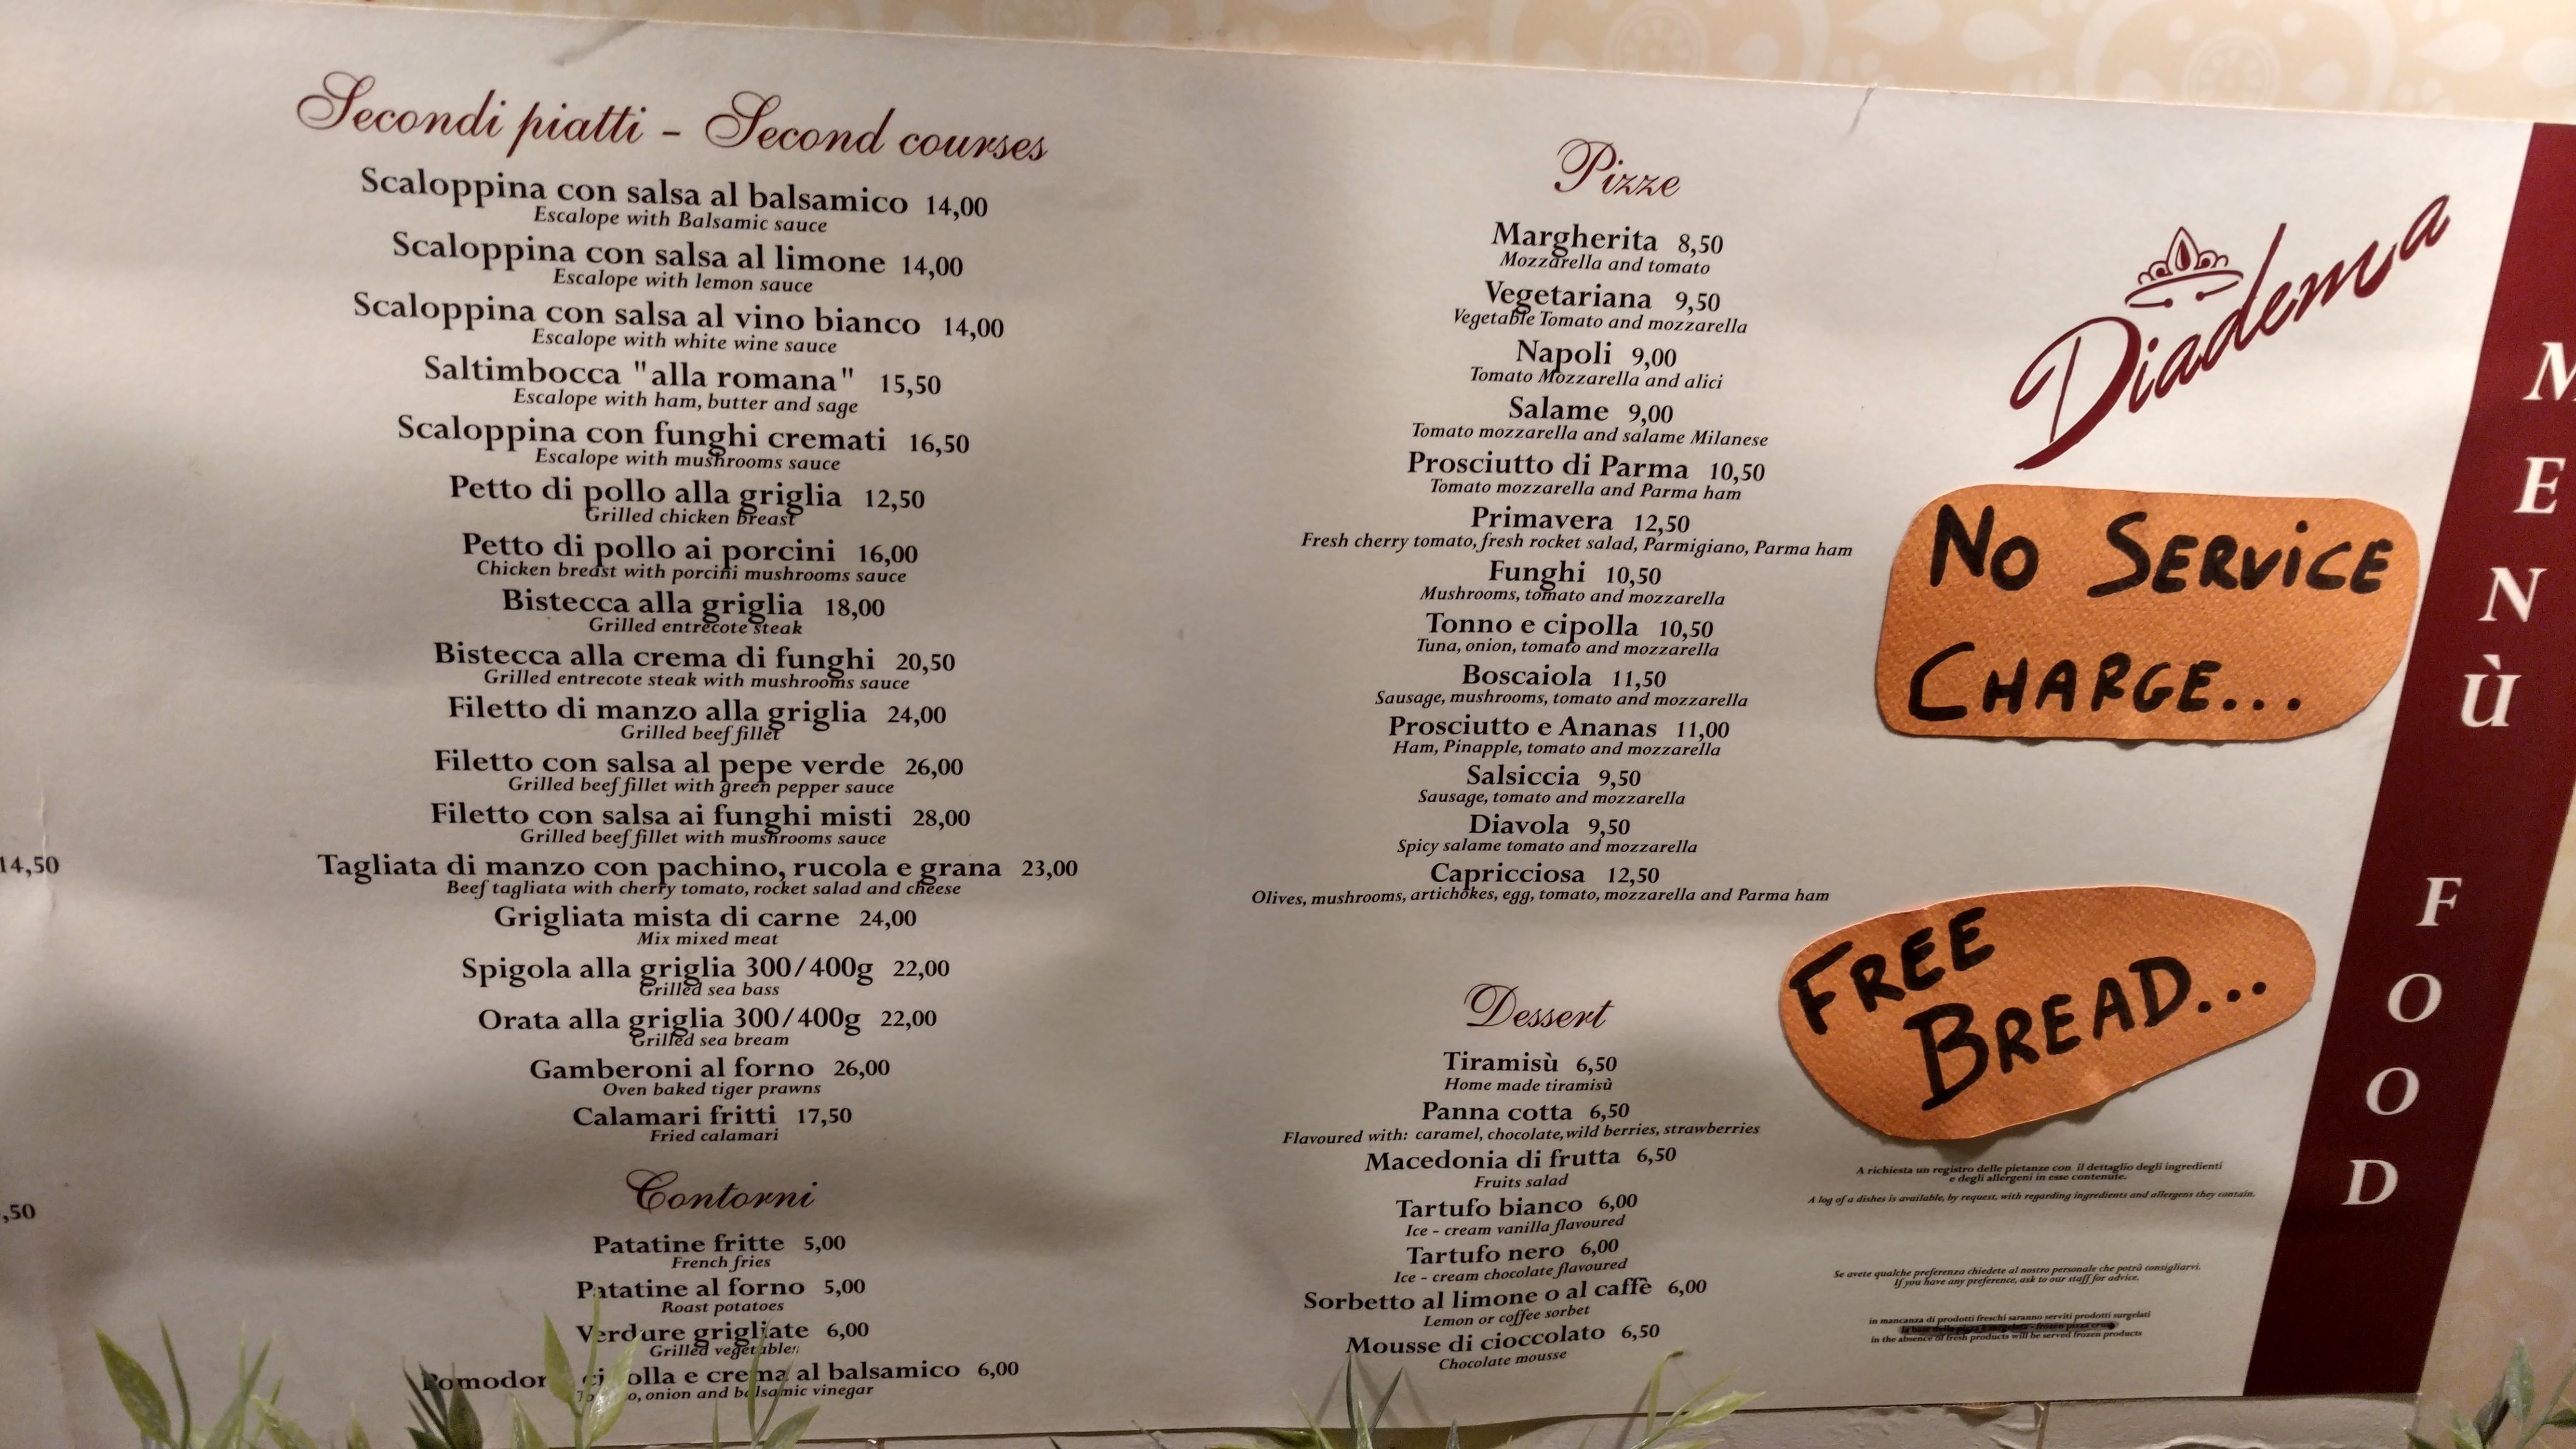 14,50
,50
Secondi piatti - Second courses
Scaloppina con salsa al balsamico 14,00
Escalope with Balsamic sauce
Scaloppina con salsa al limone 14,00
Escalope with lemon sauce
Scaloppina con salsa al vino bianco 14,00
Escalope with white wine sauce
Saltimbocca "alla romana" 15,50
Escalope with ham, butter and sage
Scaloppina con funghi cremati 16,50
Escalope with mushrooms sauce
Petto di pollo alla griglia 12,50
Grilled chicken breast
Petto di pollo ai porcini 16,00
Chicken breast with porcini mushrooms sauce
Bistecca alla griglia 18,00
Grilled entrecote steak
Bistecca alla crema di funghi 20,50
Grilled entrecote steak with mushrooms sauce
Filetto di manzo alla griglia 24,00
Grilled beef fillet
Filetto con salsa al pepe verde 26,00
Grilled beef fillet with green pepper sauce
Filetto con salsa ai funghi misti 28,00
Grilled beef fillet with mushrooms sauce
Tagliata di manzo con pachino, rucola e grana 23,00
Beef tagliata with cherry tomato, rocket salad and cheese
Grigliata mista di carne 24,00
Mix mixed meat
Spigola alla griglia 300/400g 22,00
Grilled sea bass
Orata alla griglia 300/400g 22,00
Grilled sea bream
Gamberoni al forno 26,00
Oven baked tiger prawns
Calamari fritti 17,50
Fried calamari
Contorni
Patatine fritte 5,00
French fries
Patatine al forno 5,00
Roast potatoes
Verdure grigliate 6,00
Grilled vegetables
e crema al balsamico 6,00
onion and balsamic vinegar
Pizze
Margherita 8,50
Mozzarella and tomato
Vegetariana 9,50
Vegetable Tomato and mozzarella
Napoli 9,00
Tomato Mozzarella and alici
Salame 9,00
Tomato mozzarella and salame Milanese
Prosciutto di Parma 10,50
Tomato mozzarella and Parma ham
Primavera 12,50
Fresh cherry tomato, fresh rocket salad, Parmigiano, Parma ham
Funghi 10,50
Mushrooms, tomato and mozzarella
Tonno e cipolla 10,50
Tuna, onion, tomato and mozzarella
Boscaiola 11,50
Sausage, mushrooms, tomato and mozzarella
Prosciutto e Ananas 11,00
Ham, Pinapple, tomato and mozzarella
Salsiccia 9,50
Sausage, tomato and mozzarella
Diavola 9,50
Spicy salame tomato and mozzarella
Capricciosa 12,50
Olives, mushrooms, artichokes, egg, tomato, mozzarella and Parma ham
Dessert
Tiramisù 6,50
Home made tiramisù
Panna cotta 6,50
Flavoured with: caramel, chocolate, wild berries, strawberries
Macedonia di frutta 6,50
Fruits salad
Tartufo bianco 6,00
Ice - cream vanilla flavoured
Tartufo nero 6,00
Ice - cream chocolate flavoured
Sorbetto al limone o al caffè 6,00
Lemon or coffee sorbet
Mousse di cioccolato 6,50
Chocolate mousse
Diadema
NO SERVICE
CHARGE...
FREE
BREAD...
A richiesta un registro delle pietanze con il dettaglio degli ingredienti
e degli allergeni in esse contenute.
A log of a dishes is available, by request, with regarding ingredients and allergens they contain.
Se avete qualche preferenza chiedete al nostro personale che potrà consigliarvi.
If you have any preference, ask to our staff for advice.
in mancanza di prodotti freschi saranno serviti prodotti surgelati
in the absence of fresh products will be served frozen products
MENÙ FOOD